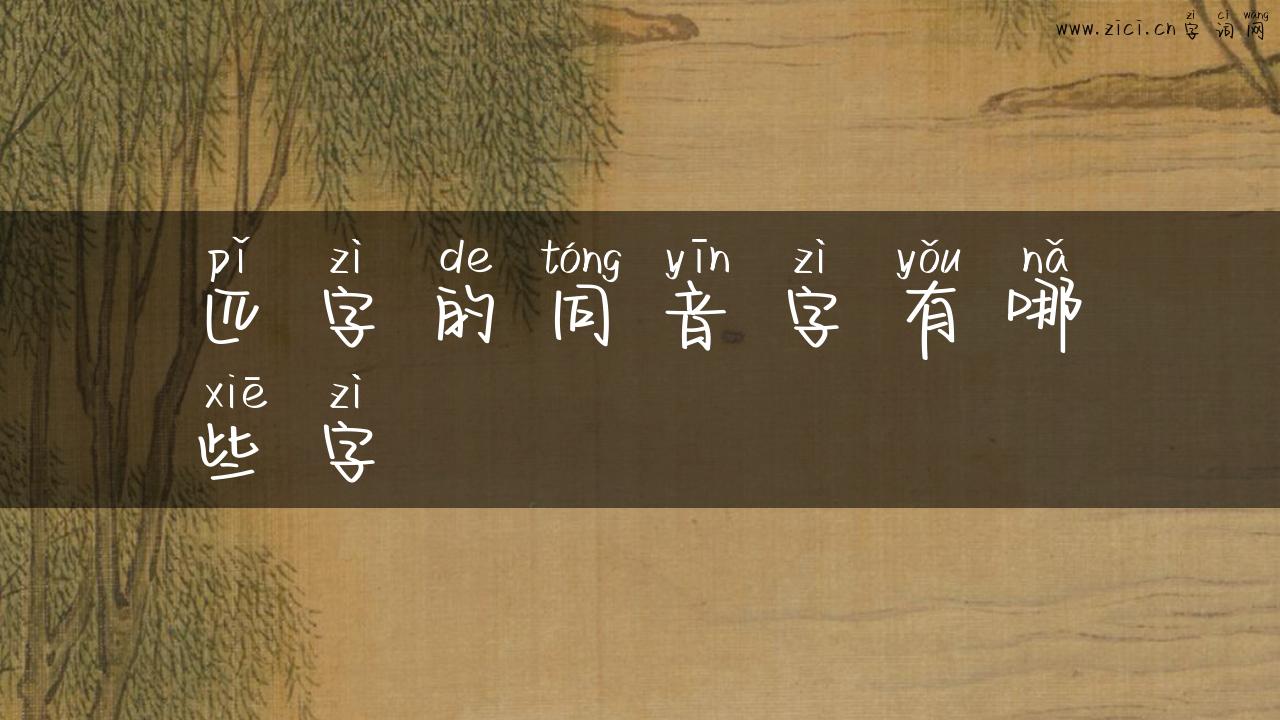 zì cí wǎng
www.zici.cn字词网
pǐ zì de tóng yīn zì yǒu nǎ
匹字的同音字有哪
xiē zì
些字